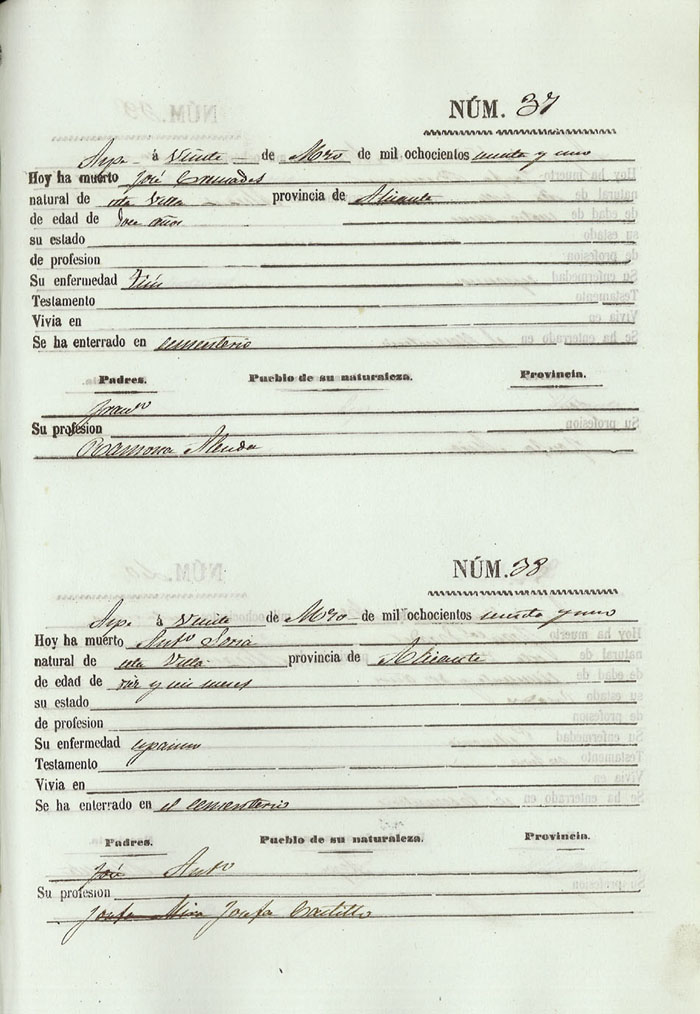 NÚM. 37
Aspe á Veinte de Mzo de mil ochocientos y uno
Hoy ha muerto José Cremades
natural de esta Villa provincia de Alicante
de edad de doce años
su estado
de profesion
Su enfermedad
Testamento
Vivia en
Se ha enterrado en cementerio
Padres. Pueblo de su naturaleza. Provincia.
Franco
Su profesion
Ramona Alenda
NÚM. 38
Aspe á Veinte de Mzo de mil ochocientos y uno
Hoy ha muerto Anto Soria
natural de esta Villa provincia de Alicante
de edad de y meses
su estado
de profesion
Su enfermedad
Testamento
Vivia en
Se ha enterrado en el cementerio
Padres. Pueblo de su naturaleza. Provincia.
José Anto
Su profesion
Josefa Mira Josefa Castillo